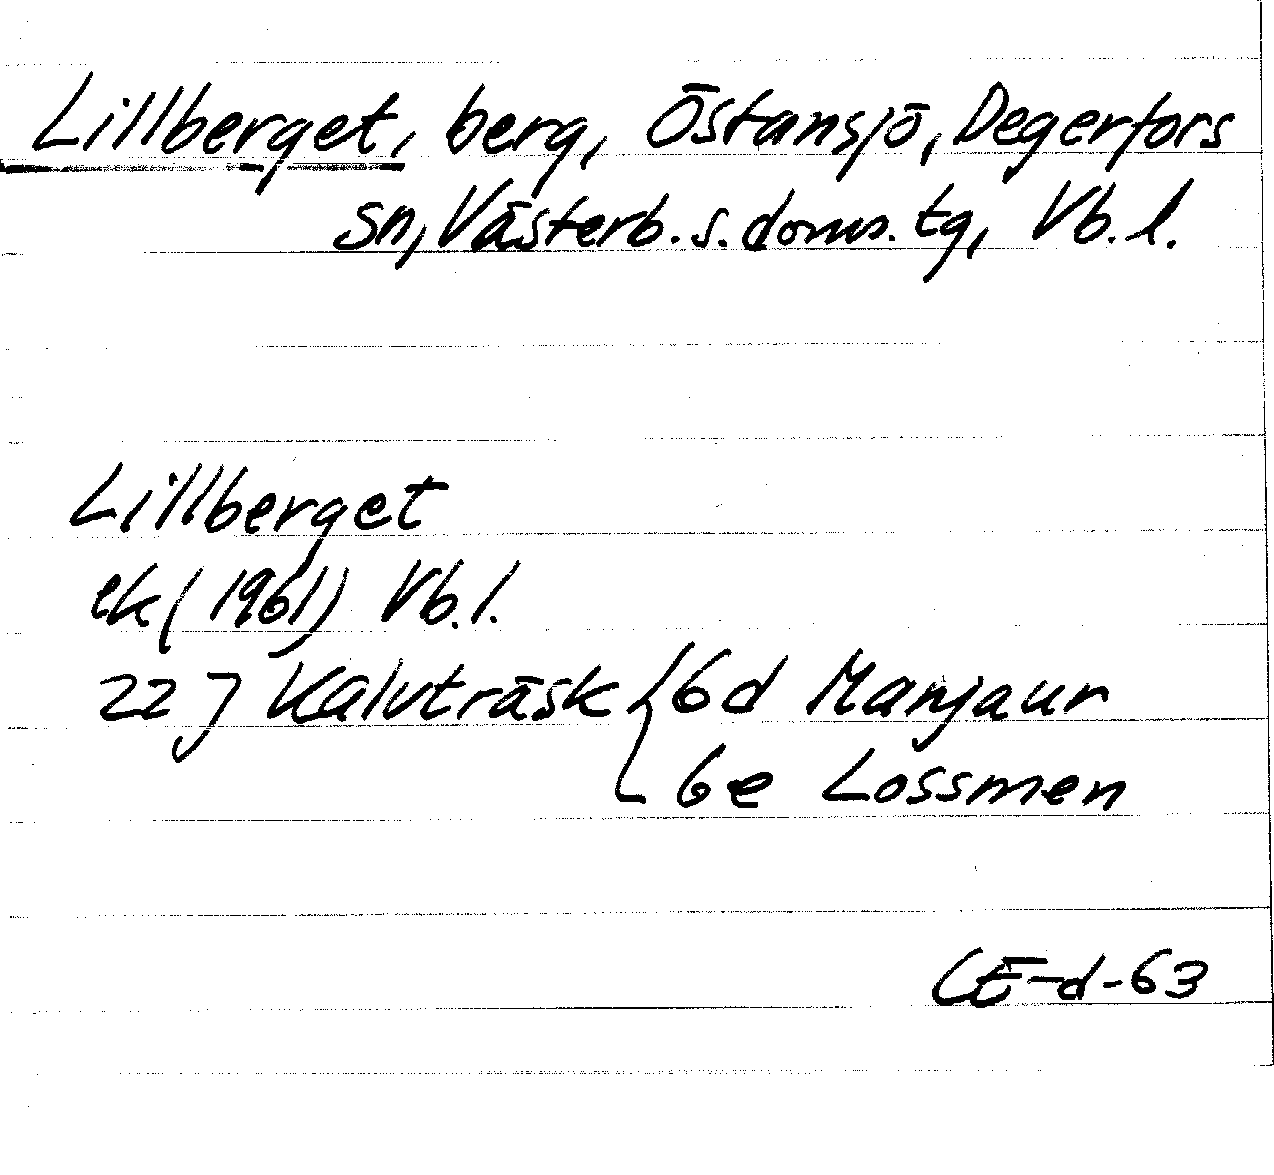 Lillberget, berg, Östansjö, Degerfors
sn, Västerb. s. doms. tg, Vb. l.
Lillberget
ek (1961) Vb. l.
22 J Kalvträsk { 6d Manjaur
6e Lossmen
CE-d-63